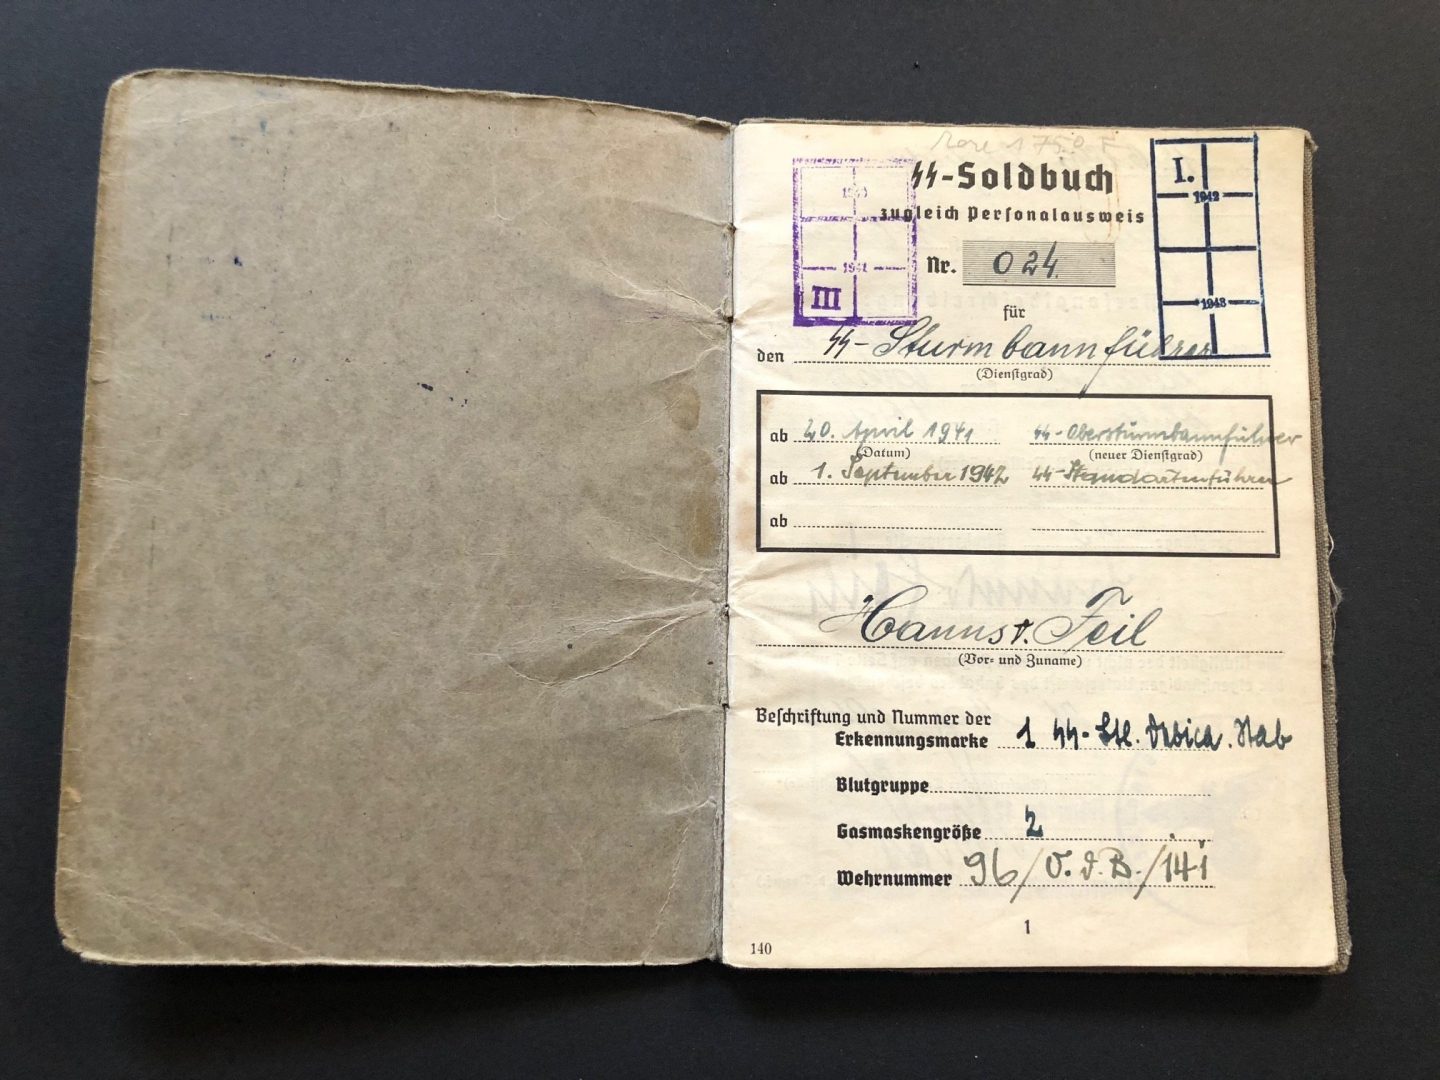 ᛋᛋ-Soldbuch
zugleich Personalausweis
Nr. 024
für
den ᛋᛋ-Sturmbannführer
(Dienstgrad)
ab 20. April 1941 ᛋᛋ-Obersturmbannführer
(Datum) (neuer Dienstgrad)
ab 1. September 1942 ᛋᛋ-Standartenführer
ab
Hanns v. Feil
(Vor- und Zuname)
Beschriftung und Nummer der
Erkennungsmarke 1 ᛋᛋ-Stab
Blutgruppe
Gasmaskengröße 2
Wehrnummer 96/V.d.B./141
1
140
1941
III
I.
1942
1943